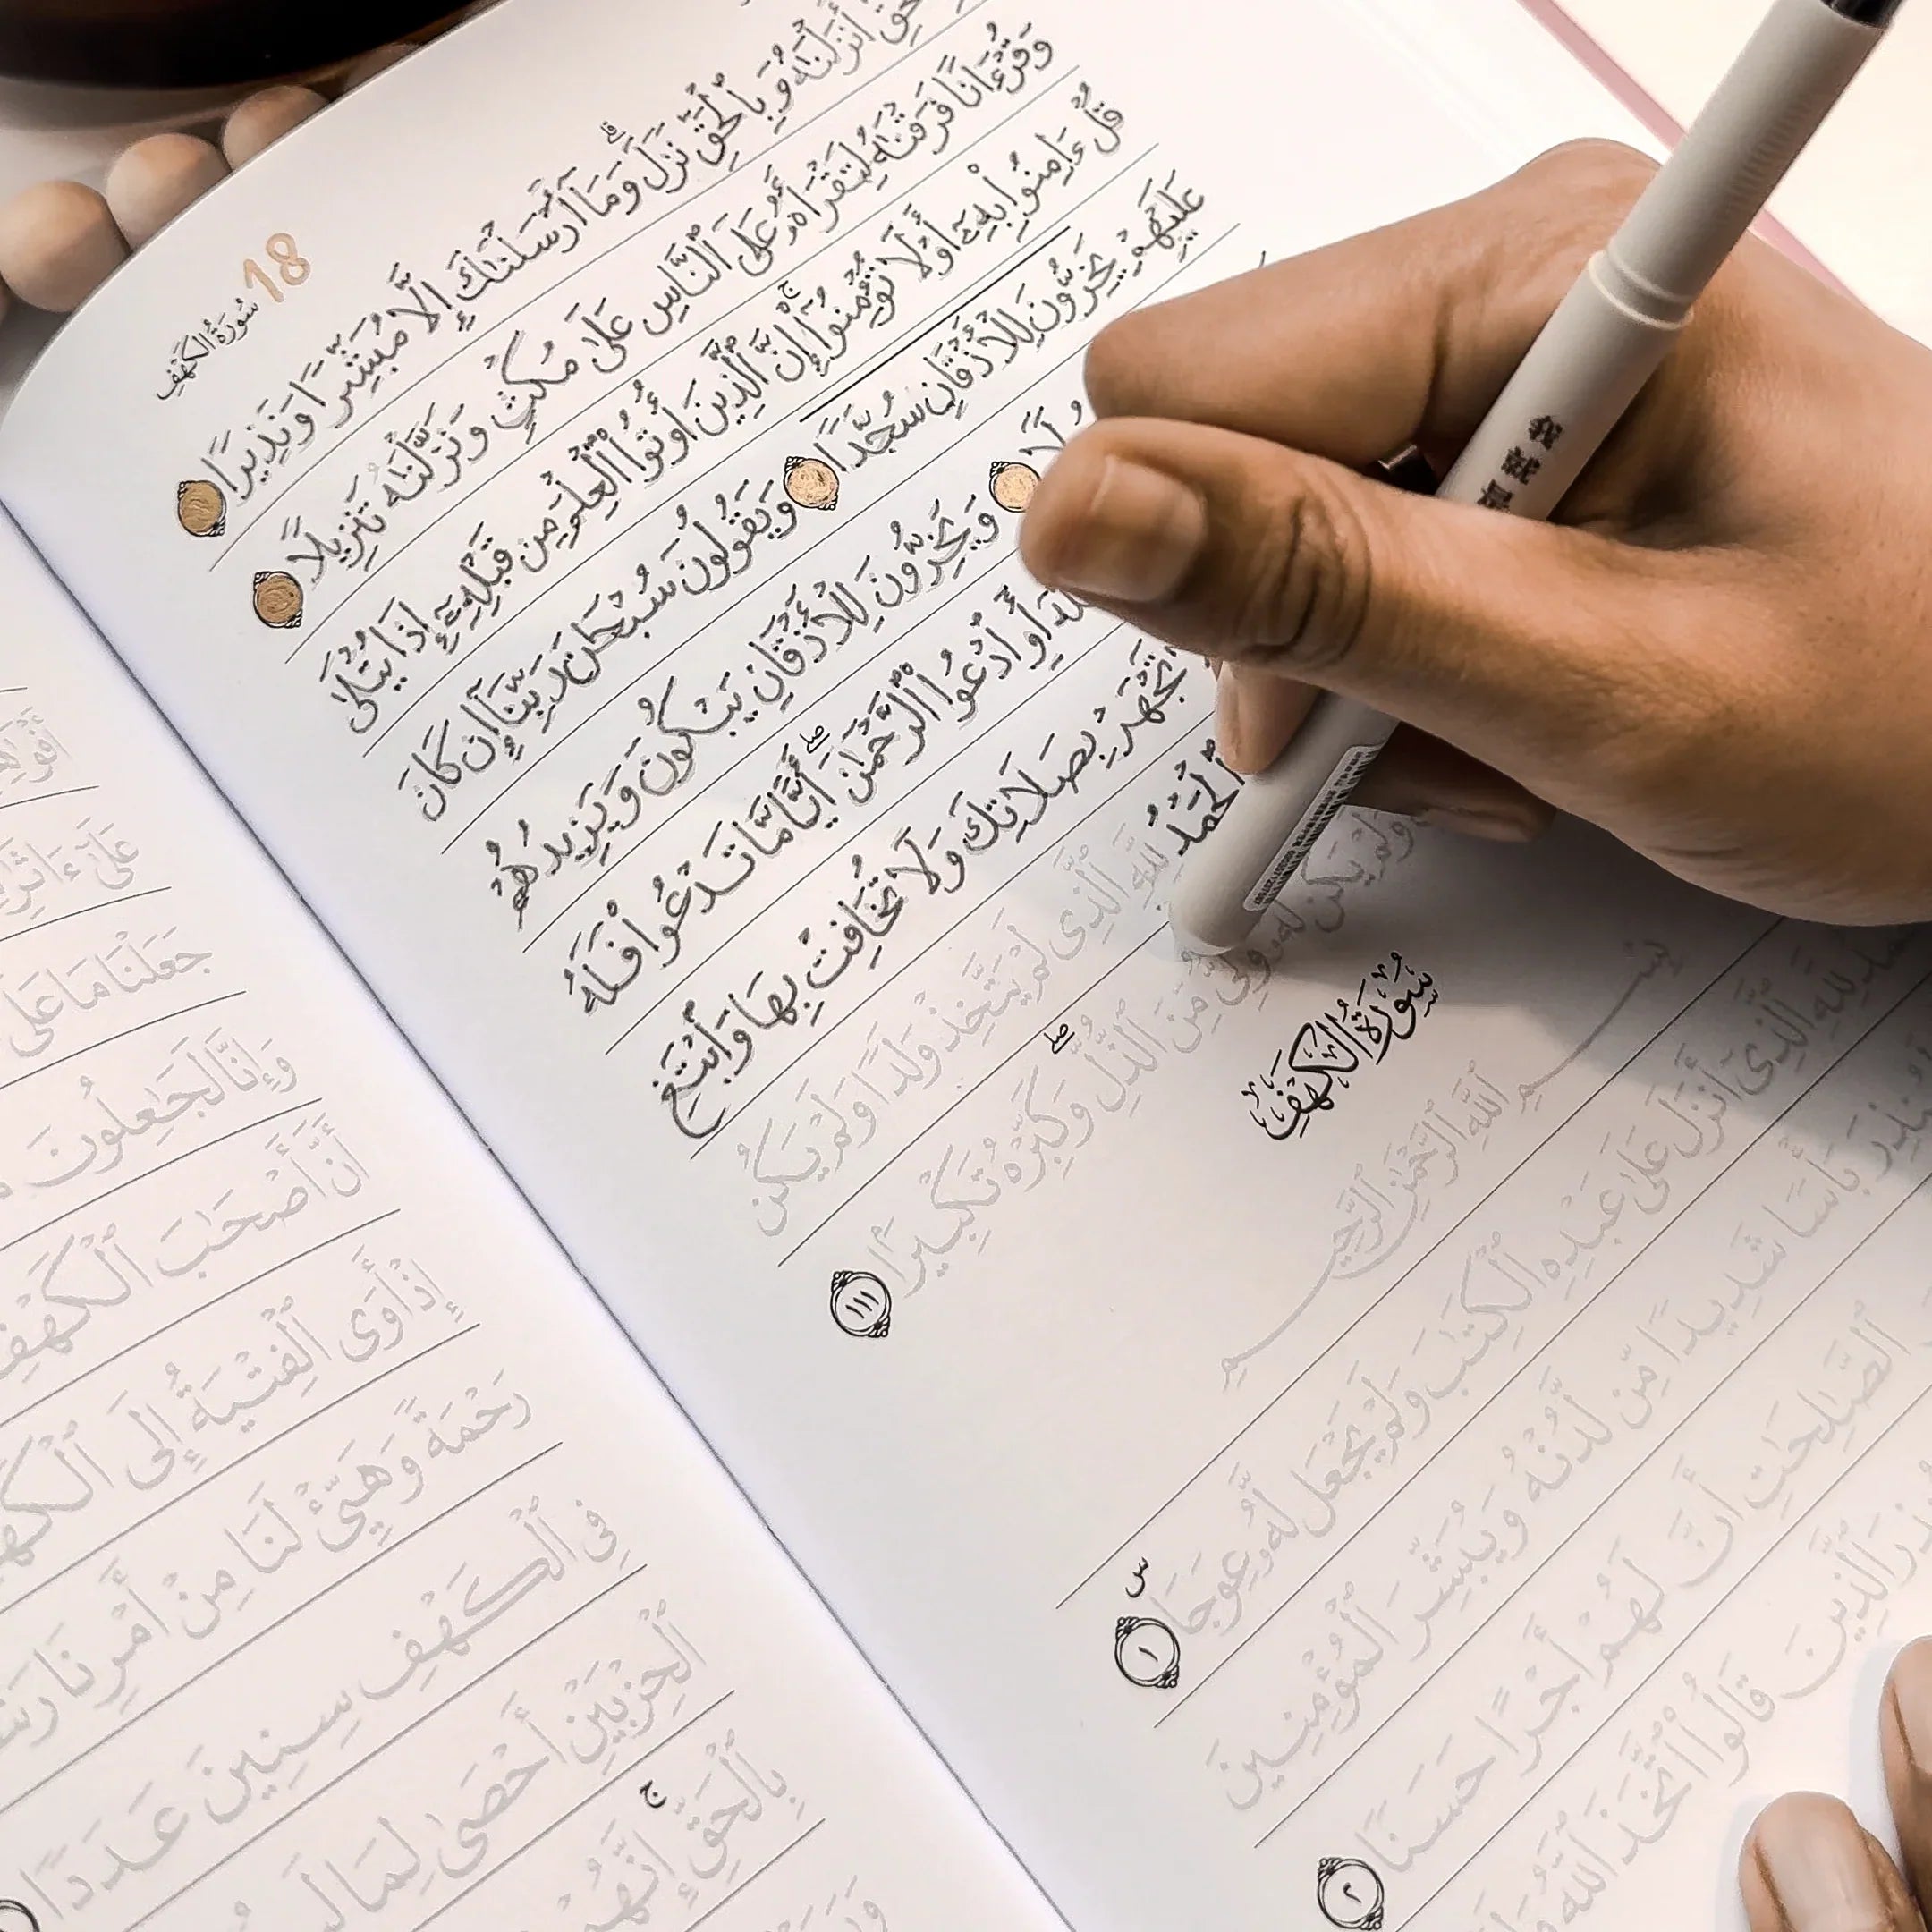 18
سُورَةُ الكَهْفِ
أَنزَلْنَٰهُ وَبِٱلْحَقِّ نَزَلَ ۗ وَمَآ أَرْسَلْنَٰكَ إِلَّا مُبَشِّرًا وَنَذِيرًا
وَقُرْءَانًا فَرَقْنَٰهُ لِتَقْرَأَهُۥ عَلَى ٱلنَّاسِ عَلَىٰ مُكْثٍ وَنَزَّلْنَٰهُ تَنزِيلًا
قُلْ ءَامِنُوا۟ بِهِۦٓ أَوْ لَا تُؤْمِنُوٓا۟ ۚ إِنَّ ٱلَّذِينَ أُوتُوا۟ ٱلْعِلْمَ مِن قَبْلِهِۦٓ إِذَا يُتْلَىٰ
عَلَيْهِمْ يَخِرُّونَ لِلْأَذْقَانِ سُجَّدًا وَيَقُولُونَ سُبْحَٰنَ رَبِّنَآ إِن كَانَ
وَيَخِرُّونَ لِلْأَذْقَانِ يَبْكُونَ وَيَزِيدُهُمْ
أَوِ ٱدْعُوا۟ ٱلرَّحْمَٰنَ ۖ أَيًّا مَّا تَدْعُوا۟ فَلَهُ
تَجْهَرْ بِصَلَاتِكَ وَلَا تُخَافِتْ بِهَا وَٱبْتَغِ
ٱلْحَمْدُ لِلَّهِ ٱلَّذِى لَمْ يَتَّخِذْ وَلَدًا وَلَمْ يَكُن
وَلَمْ يَكُن لَّهُۥ وَلِىٌّ مِّنَ ٱلذُّلِّ ۖ وَكَبِّرْهُ تَكْبِيرًۢا ١١١
سُورَةُ الكَهْفِ
بِسْمِ ٱللَّهِ ٱلرَّحْمَٰنِ ٱلرَّحِيمِ
لِلَّهِ ٱلَّذِىٓ أَنزَلَ عَلَىٰ عَبْدِهِ ٱلْكِتَٰبَ وَلَمْ يَجْعَل لَّهُۥ عِوَجَا ۜ ١
بَأْسًا شَدِيدًا مِّن لَّدُنْهُ وَيُبَشِّرَ ٱلْمُؤْمِنِينَ
ٱلصَّٰلِحَٰتِ أَنَّ لَهُمْ أَجْرًا حَسَنًا ٢
ٱلَّذِينَ قَالُوا۟ ٱتَّخَذَ ٱللَّهُ
عَلَىٰٓ ءَاثَٰرِ
جَعَلْنَا مَا عَلَى
وَإِنَّا لَجَٰعِلُونَ
أَنَّ أَصْحَٰبَ ٱلْكَهْفِ
إِذْ أَوَى ٱلْفِتْيَةُ إِلَى ٱلْكَهْفِ
رَحْمَةً وَهَيِّئْ لَنَا مِنْ أَمْرِنَا
فِى ٱلْكَهْفِ سِنِينَ عَدَدًا
ٱلْحِزْبَيْنِ أَحْصَىٰ لِمَا
بِٱلْحَقِّ ۚ إِنَّهُمْ